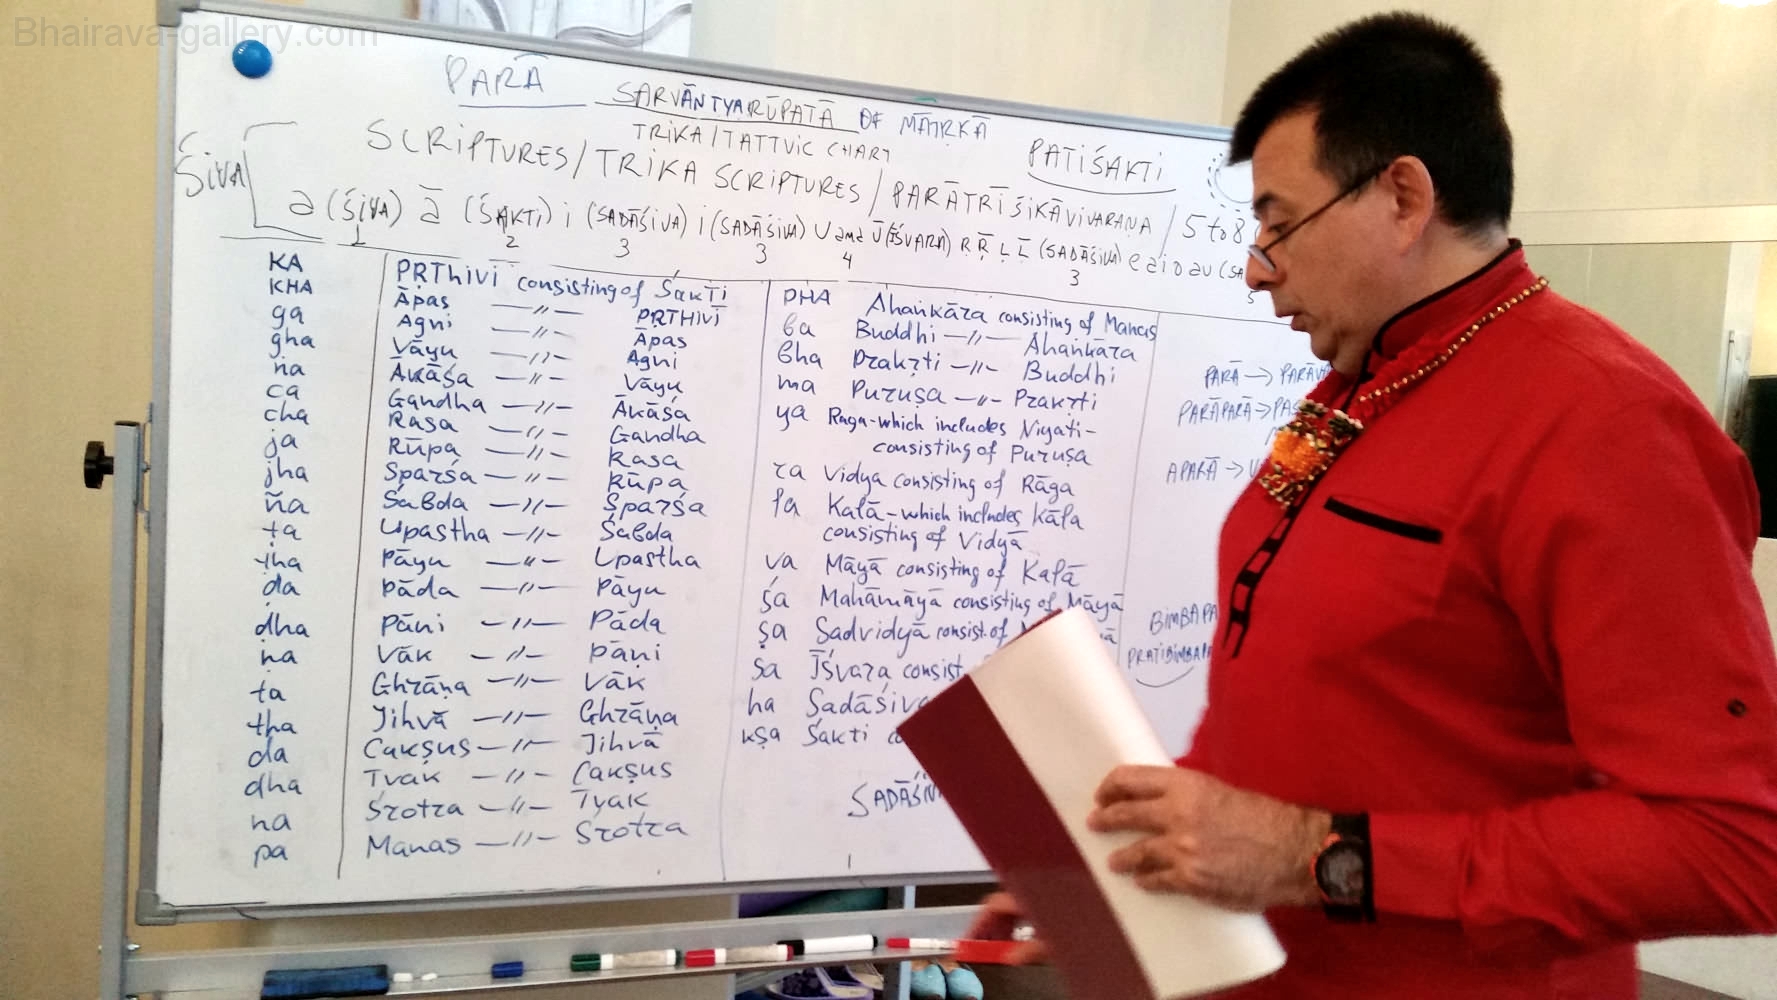 Bhairava-gallery.com
PARĀ
SARVĀNTYARŪPATĀ OF MĀTṚKĀ
TRIKA/TATTVIC CHART
PATIŚAKTI
SCRIPTURES/TRIKA SCRIPTURES/PARĀTRĪŚIKĀVIVARAṆA/5 to 8
ŚIVA
a (ŚIVA) ā (ŚAKTI) i (SADĀŚIVA) i (SADĀŚIVA) U and Ū (ĪŚVARA) Ṛ Ṝ Ḷ Ḹ (SADĀŚIVA) e ai o au (SA
1 2 3 3 4 3 5
KA PṚThivī consisting of Śakti
KHA Āpas —〃— PṚTHIVĪ
ga Agni —〃— Āpas
gha Vāyu —〃— Agni
ṅa Ākāśa —〃— Vāyu
ca Gandha —〃— Ākāśa
cha Rasa —〃— Gandha
ja Rūpa —〃— Rasa
jha Sparśa —〃— Rūpa
ña Śabda —〃— Sparśa
ṭa Upastha —〃— Śabda
ṭha Pāyu —〃— Upastha
ḍa Pāda —〃— Pāyu
ḍha Pāṇi —〃— Pāda
ṇa Vāk —〃— Pāṇi
ta Ghrāṇa —〃— Vāk
tha Jihvā —〃— Ghrāṇa
da Cakṣus —〃— Jihvā
dha Tvak —〃— Cakṣus
na Śrotra —〃— Tvak
pa Manas —〃— Śrotra
PHA Ahaṅkāra consisting of Manas
ba Buddhi —〃— Ahaṅkāra
bha Prakṛti —〃— Buddhi
ma Puruṣa —〃— Prakṛti
ya Raga-which includes Niyati-
consisting of Puruṣa
ra Vidya consisting of Rāga
la Kalā-which includes Kāla
consisting of Vidyā
va Māyā consisting of Kalā
śa Mahāmāyā consisting of Māyā
ṣa Sadvidyā consist. of
sa Īśvara consist
ha Sadāśiva
kṣa Śakti
SADĀŚIV
1
PARĀ →
PARĀPARĀ →
APARĀ →
BIMBA
PRATIBIMBA